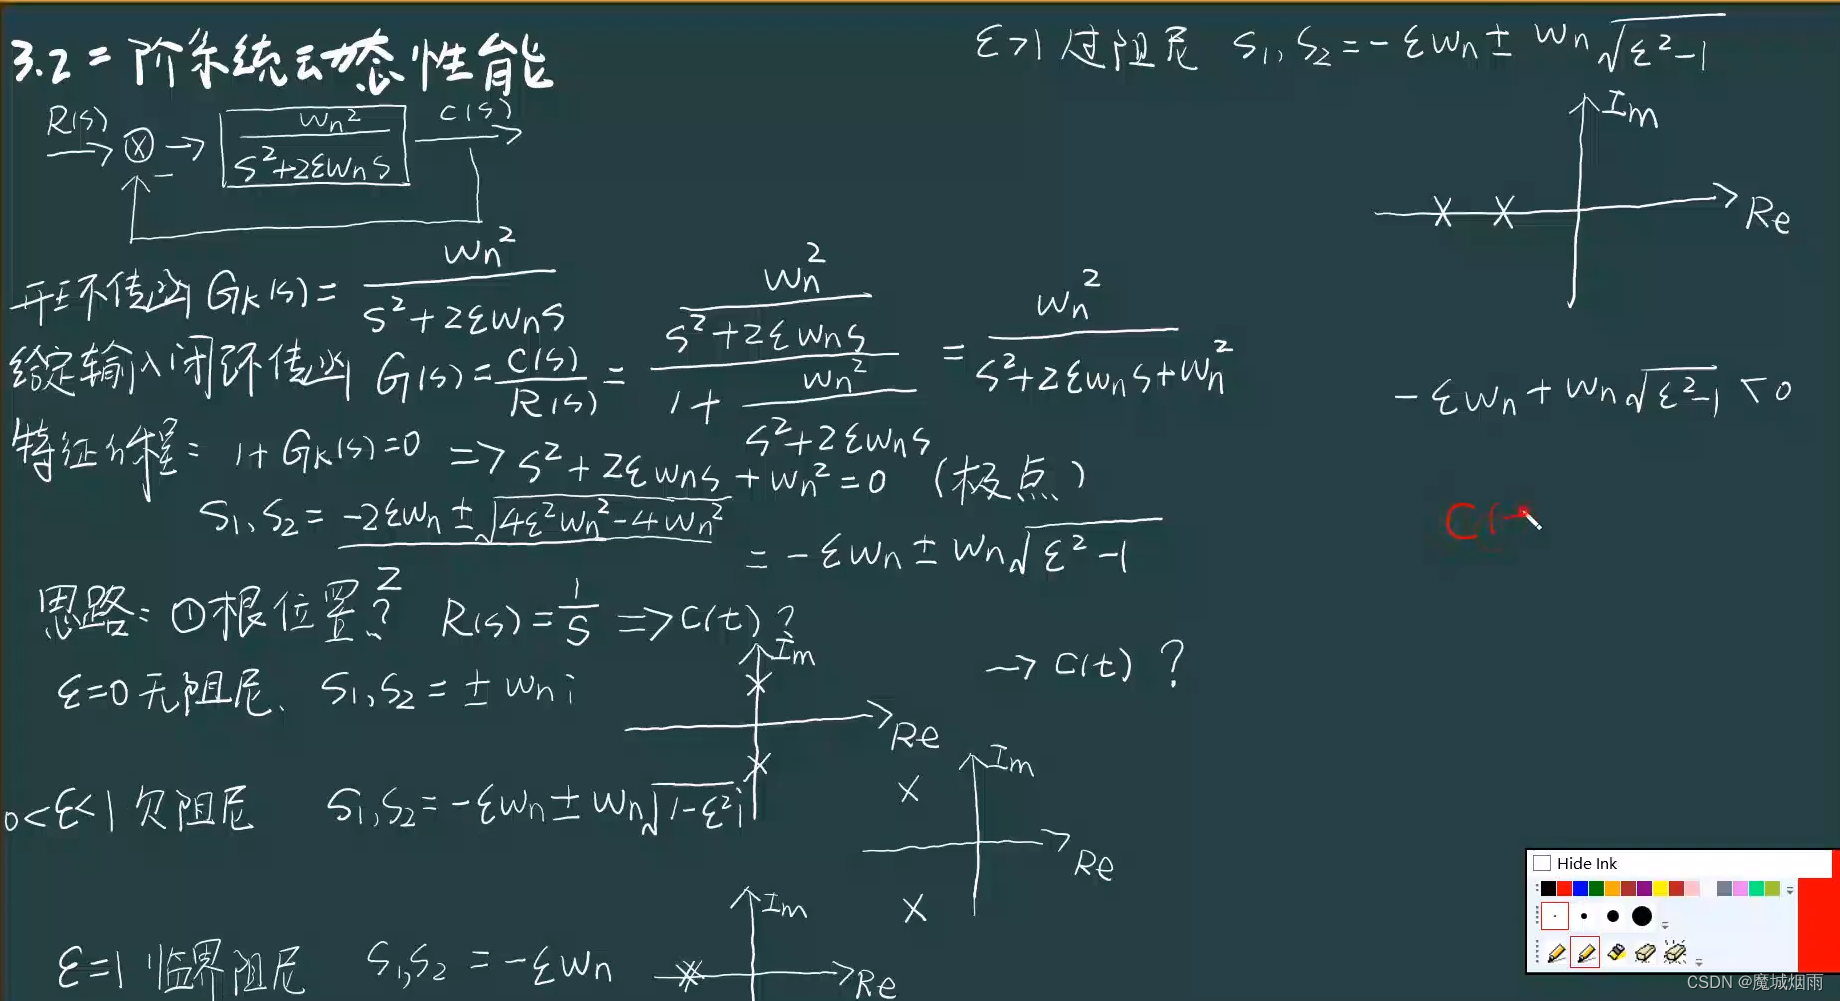 3.2 二阶系统动态性能
R(s) ⊗ − → wn²/(s²+2εwns) C(s)
开环传函 GK(s) = wn²/(s²+2εwns)
给定输入闭环传函 G(s) = C(s)/R(s) = (wn²/(s²+2εwns))/(1+wn²/(s²+2εwns)) = wn²/(s²+2εwns+wn²)
特征方程: 1+GK(s)=0 => s²+2εwns+wn²=0 (极点)
S1,S2 = (-2εwn±√(4ε²wn²-4wn²))/2 = -εwn ± wn√(ε²-1)
思路: ①根位置? R(s)=1/S => C(t)?
→ C(t) ?
ε=0 无阻尼. S1,S2 = ± wn i
Im
Re
0<ε<1 欠阻尼 S1,S2=-εwn±wn√(1-ε²) i
Im
Re
ε=1 临界阻尼 S1,S2 = -εwn
Im
Re
ε>1 过阻尼 S1,S2=-εwn± wn√(ε²-1)
Im
Re
-εwn+wn√(ε²-1) <0
C(
Hide Ink
CSDN @魔城烟雨